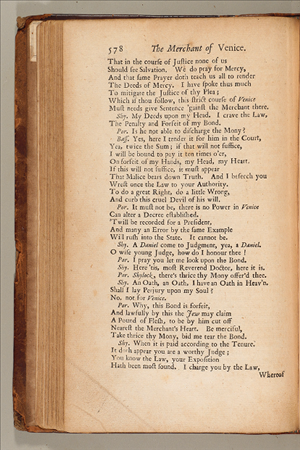 578 The Merchant of Venice.
That in the course of Justice none of us
Should see Salvation. We do pray for Mercy,
And that same Prayer doth teach us all to render
The Deeds of Mercy. I have spoke thus much
To mitigate the Justice of thy Plea;
Which if thou follow, this strict course of Venice
Must needs give Sentence 'gainst the Merchant there.
Shy. My Deeds upon my Head. I crave the Law,
The Penalty and Forfeit of my Bond.
Por. Is he not able to discharge the Mony?
Bass. Yes, here I tender it for him in the Court,
Yea, twice the Sum; if that will not suffice,
I will be bound to pay it ten times o'er,
On forfeit of my Hands, my Head, my Heart.
If this will not suffice, it must appear
That Malice bears down Truth. And I beseech you
Wrest once the Law to your Authority.
To do a great Right, do a little Wrong,
And curb this cruel Devil of his will.
Por. It must not be, there is no Power in Venice
Can alter a Decree established.
'Twill be recorded for a President,
And many an Error by the same Example
Will rush into the State. It cannot be.
Shy. A Daniel come to Judgment, yea, a Daniel.
O wise young Judge, how do I honour thee!
Por. I pray you let me look upon the Bond.
Shy. Here 'tis, most Reverend Doctor, here it is.
Por. Shylock, there's thrice thy Mony offer'd thee.
Shy. An Oath, an Oath, I have an Oath in Heav'n.
Shall I lay Perjury upon my Soul?
No, not for Venice.
Por. Why, this Bond is forfeit,
And lawfully by this the Jew may claim
A Pound of Flesh, to be by him cut off
Nearest the Merchant's Heart. Be merciful,
Take thrice thy Mony, bid me tear the Bond.
Shy. When it is paid according to the Tenure.
It doth appear you are a worthy Judge;
You know the Law, your Exposition
Hath been most sound. I charge you by the Law,
Whereof